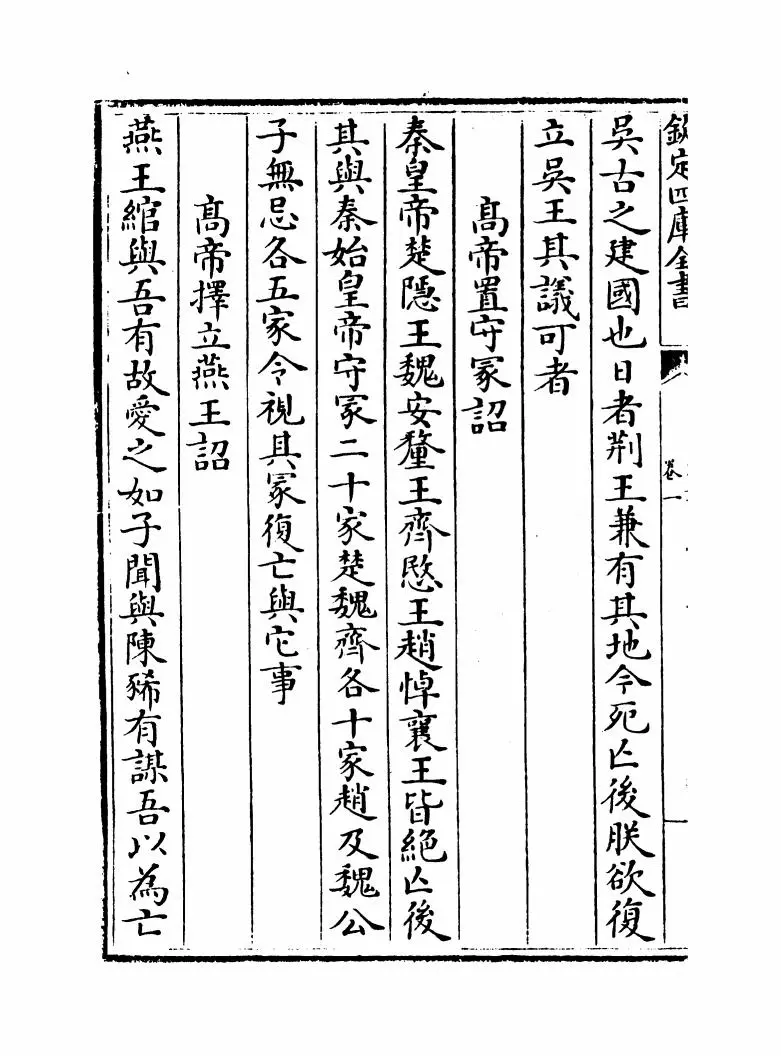 欽定四庫全書
卷一
吳古之建國也日者荆王兼有其地今死亾後朕欲復
立吳王其議可者
髙帝置守冡詔
秦皇帝楚隱王魏安釐王齊愍王趙悼襄王皆絶亾後
其與秦始皇帝守冡二十家楚魏齊各十家趙及魏公
子無忌各五家令視其冡復亡與它事
髙帝擇立燕王詔
燕王綰與吾有故愛之如子聞與陳豨有謀吾以為亡